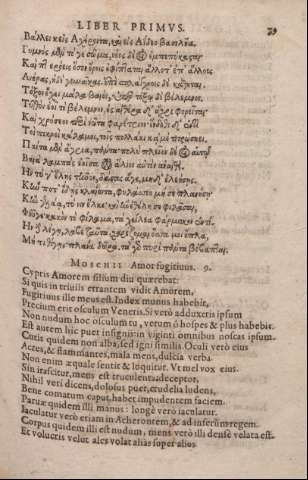 LIBER PRIMVS. 39
Βάλλει κ' εἰς Ἀχέροντα, καὶ εἰς Ἀΐδεω βασιλῆα.
Γυμνὸς μὲν τό γε σῶμα, νόος δέ οἱ ἐμπεπύκασται.
Καὶ πτερόεις ὅσον ὄρνις ἐφίπταται ἄλλοτ' ἐπ' ἄλλους
Ἀνέρας, ἠδὲ γυναῖκας, ἐπὶ σπλάγχνοις δὲ κάθηται.
Τόξον ἔχει μάλα βαιόν, ὑπὲρ τόξω δὲ βέλεμνον.
καὶ χρύσεον
Τοὶ πικροὶ κάλαμοι, τοῖς πολλάκι κἀμὲ τιτρώσκει.
Πάντα μὲν ἄγρια, πάντα· πολὺ πλεῖον δέ οἱ αὐτῷ
Βαιὰ λαμπὰς ἐοῖσα
Ἢν τύ γ' ἕλῃς τῆνον, δάσας ἄγε, μηδ' ἐλεήσῃς.
Κἤν ποτ' ἴδῃς κλαίοντα, φυλάσσεο μή σε πλανήσῃ.
Κἢν γελάῃ, τύ νιν ἕλκε· καὶ ἢν ἐθέλῃ σε φιλᾶσαι,
Φεῦγε· κακὸν τὸ φίλαμα, τὰ χείλεα φάρμακον ἐντί.
Ἢν δὲ λέγῃ, λάβε ταῦτα, χαρίζομαι ὅσσα μοι ὅπλα,
Μή τι θίγῃς, πλάνα δῶρα, τὰ γὰρ πυρὶ πάντα βέβαπται.
MOSCHII Amor fugitiuus. 9.
Cypris Amorem filium diu quærebat:
Si quis in triuiis errantem vidit Amorem,
Fugitiuus ille meus est. Index munus habebit,
Precium erit osculum Veneris. Si verò adduxeris ipsum
Non nudum hoc osculum tu, verum ô hospes & plus habebis.
Est autem hic puer insignis: in viginti omnibus noscas ipsum.
Cutis quidem non alba, sed igni similis. Oculi verò eius
Actes, & flammantes, mala mens, dulcia verba.
Non enim æquale sentit & loquitur. Vt mel vox eius.
Sin irascitur, mens est truculenta: deceptor,
Nihil veri dicens, dolosus puer, crudelia ludens,
Bene comatum caput, habet impudentem faciem.
Paruæ quidem illi manus: longè verò iaculatur.
Iaculatur verò etiam in Acherontem, & ad inferûm regem.
Corpus quidem illi est nudum, mens verò illi densè velata est.
Et volucris velut ales volat alias super alios